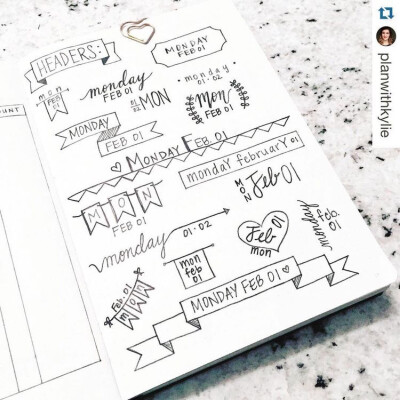 HEADERS:
MONDAY
FEB 01
mon
FEB
01
monday
FEB 01
monday
01·02
01
02
MON
Mon
FEB 01
MONDAY
FEB 01
MONDAY FEB 01
monday february 01
MON
FEB 01
MON
Feb 01
monday
feb.
01
monday
01·02
mon
feb
01
Feb
01
mon
Feb. 01
MON
MONDAY FEB 01
OUNT
planwithkylie